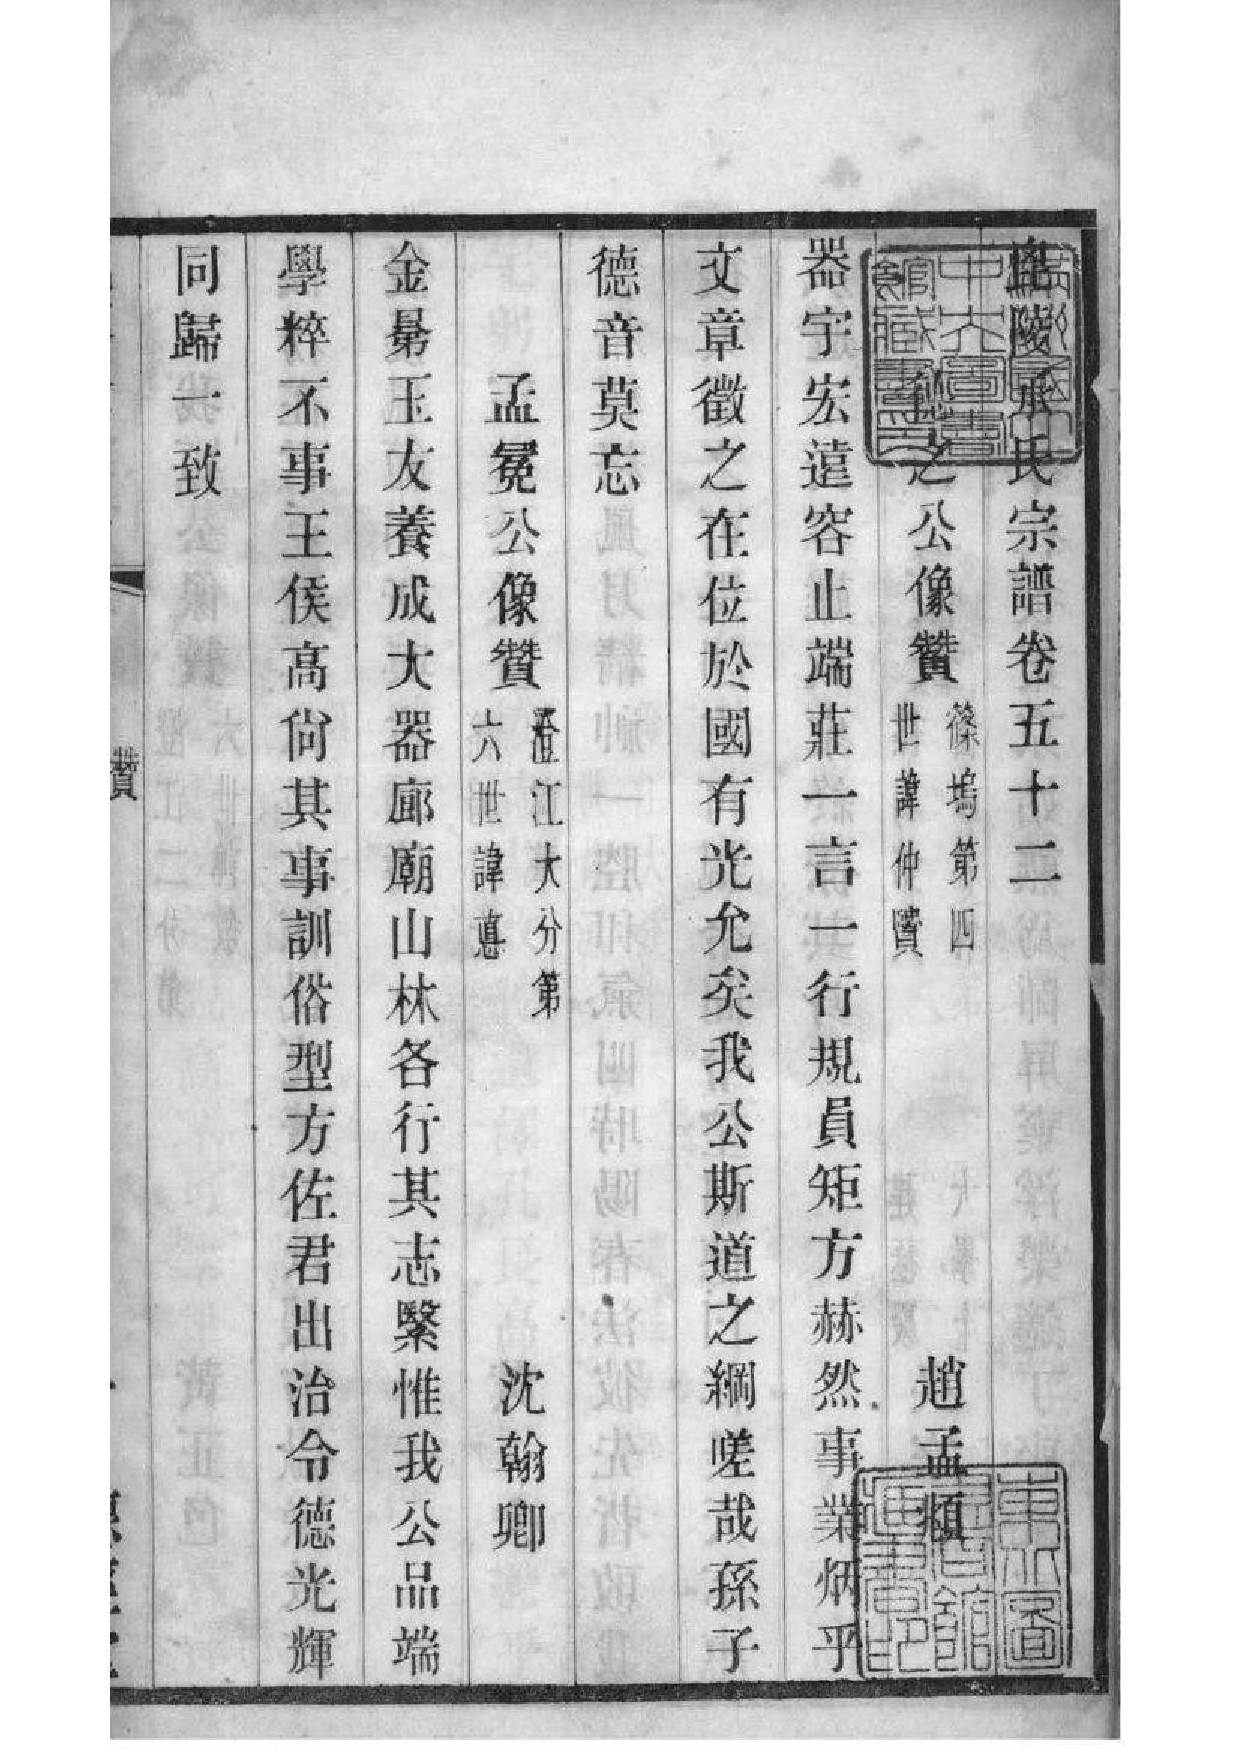 毘陵承氏宗譜卷五十二
之公像贊 篠塢第四世諱仲贒 趙孟頫
器宇宏遠容止端莊一言一行規員矩方赫然事業炳乎
文章徵之在位於國有光允矣我公斯道之綱嗟哉孫子
德音莫忘
孟冕公像贊 澄江大分第六世諱惪 沈翰卿
金㫤玉友養成大器廊廟山林各行其志繄惟我公品端
學粹不事王侯高尙其事訓俗型方佐君出治令德光輝
同歸一致
贊